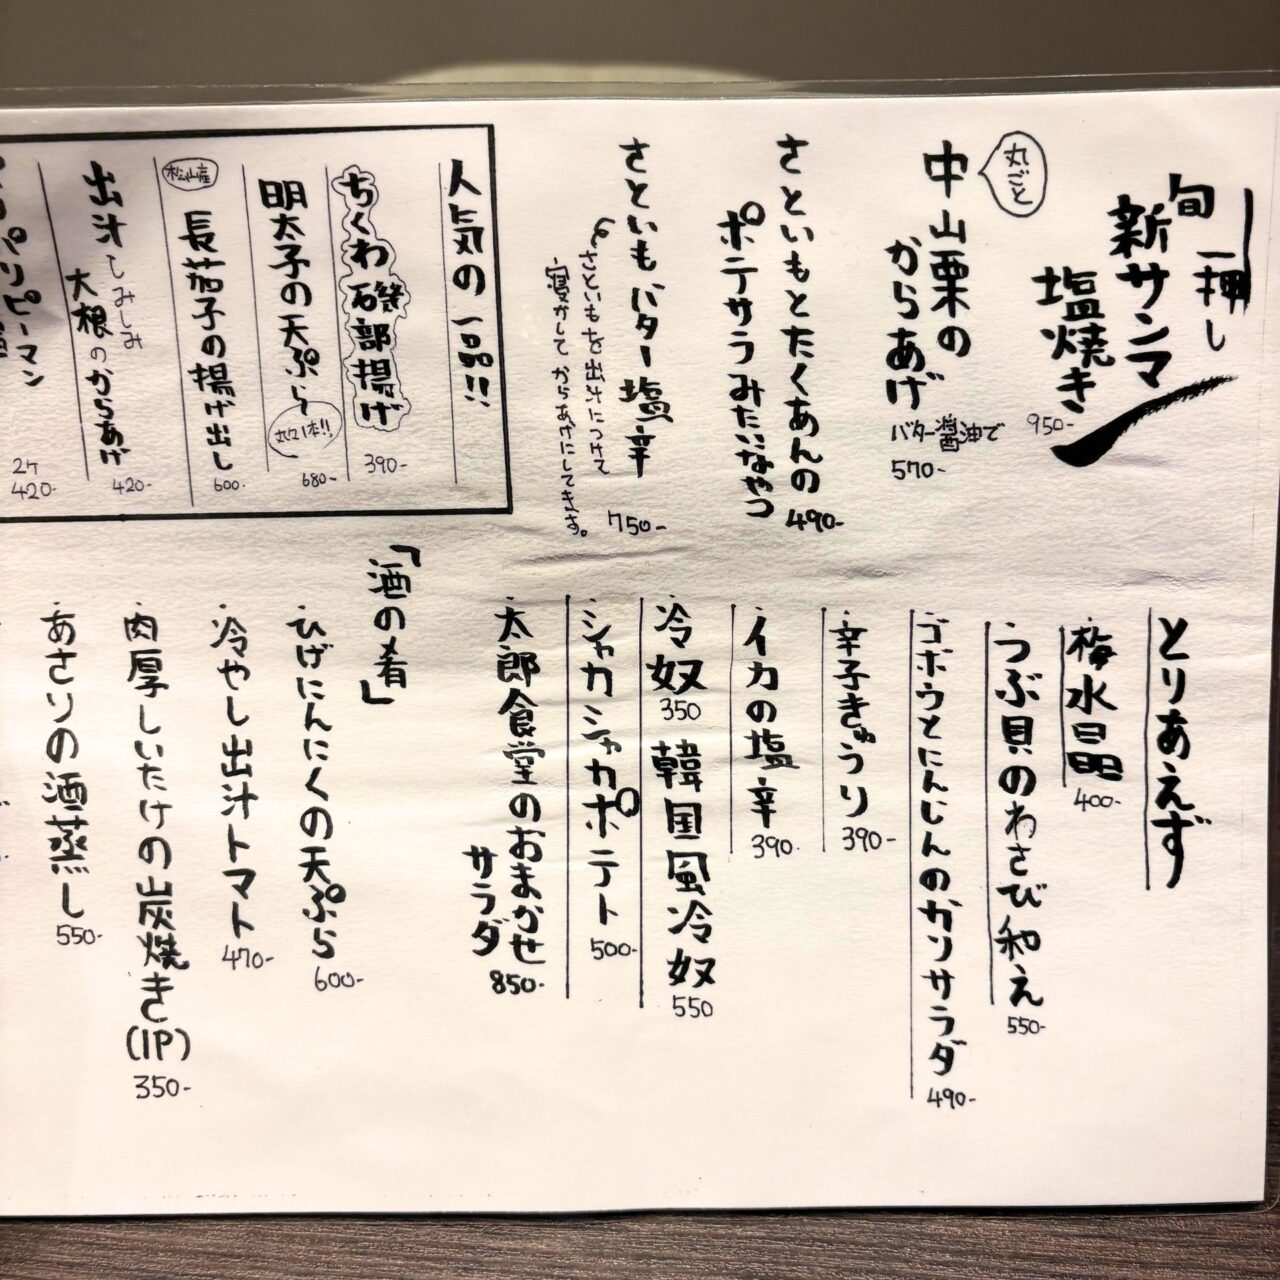 一押し
旬
新サンマ
塩焼き
950-
丸ごと
中山栗の
からあげ
バター醤油で
570-
さといもとたくあんの
ポテサラみたいなやつ
490-
さといもバター塩辛
さといもを出汁につけて
寝かしてからあげにしてます。
750-
人気の一品!!
ちくわ磯部揚げ
390-
明太子の天ぷら
丸ごと1本!!
680-
松山産
長茄子の揚げ出し
600-
出汁しみしみ
大根のからあげ
420-
パリピーマン
2ケ
420-
とりあえず
梅水晶
400-
つぶ貝のわさび和え
550-
ゴボウとにんじんのカリサラダ
490-
辛子きゅうり
390-
イカの塩辛
390-
冷奴
350
韓国風冷奴
550
シャカシャカポテト
500-
太郎食堂のおまかせ
サラダ
850-
「酒の肴」
ひげにんにくの天ぷら
600-
冷やし出汁トマト
470-
肉厚しいたけの炭焼き
(1P)
350-
あさりの酒蒸し
550-